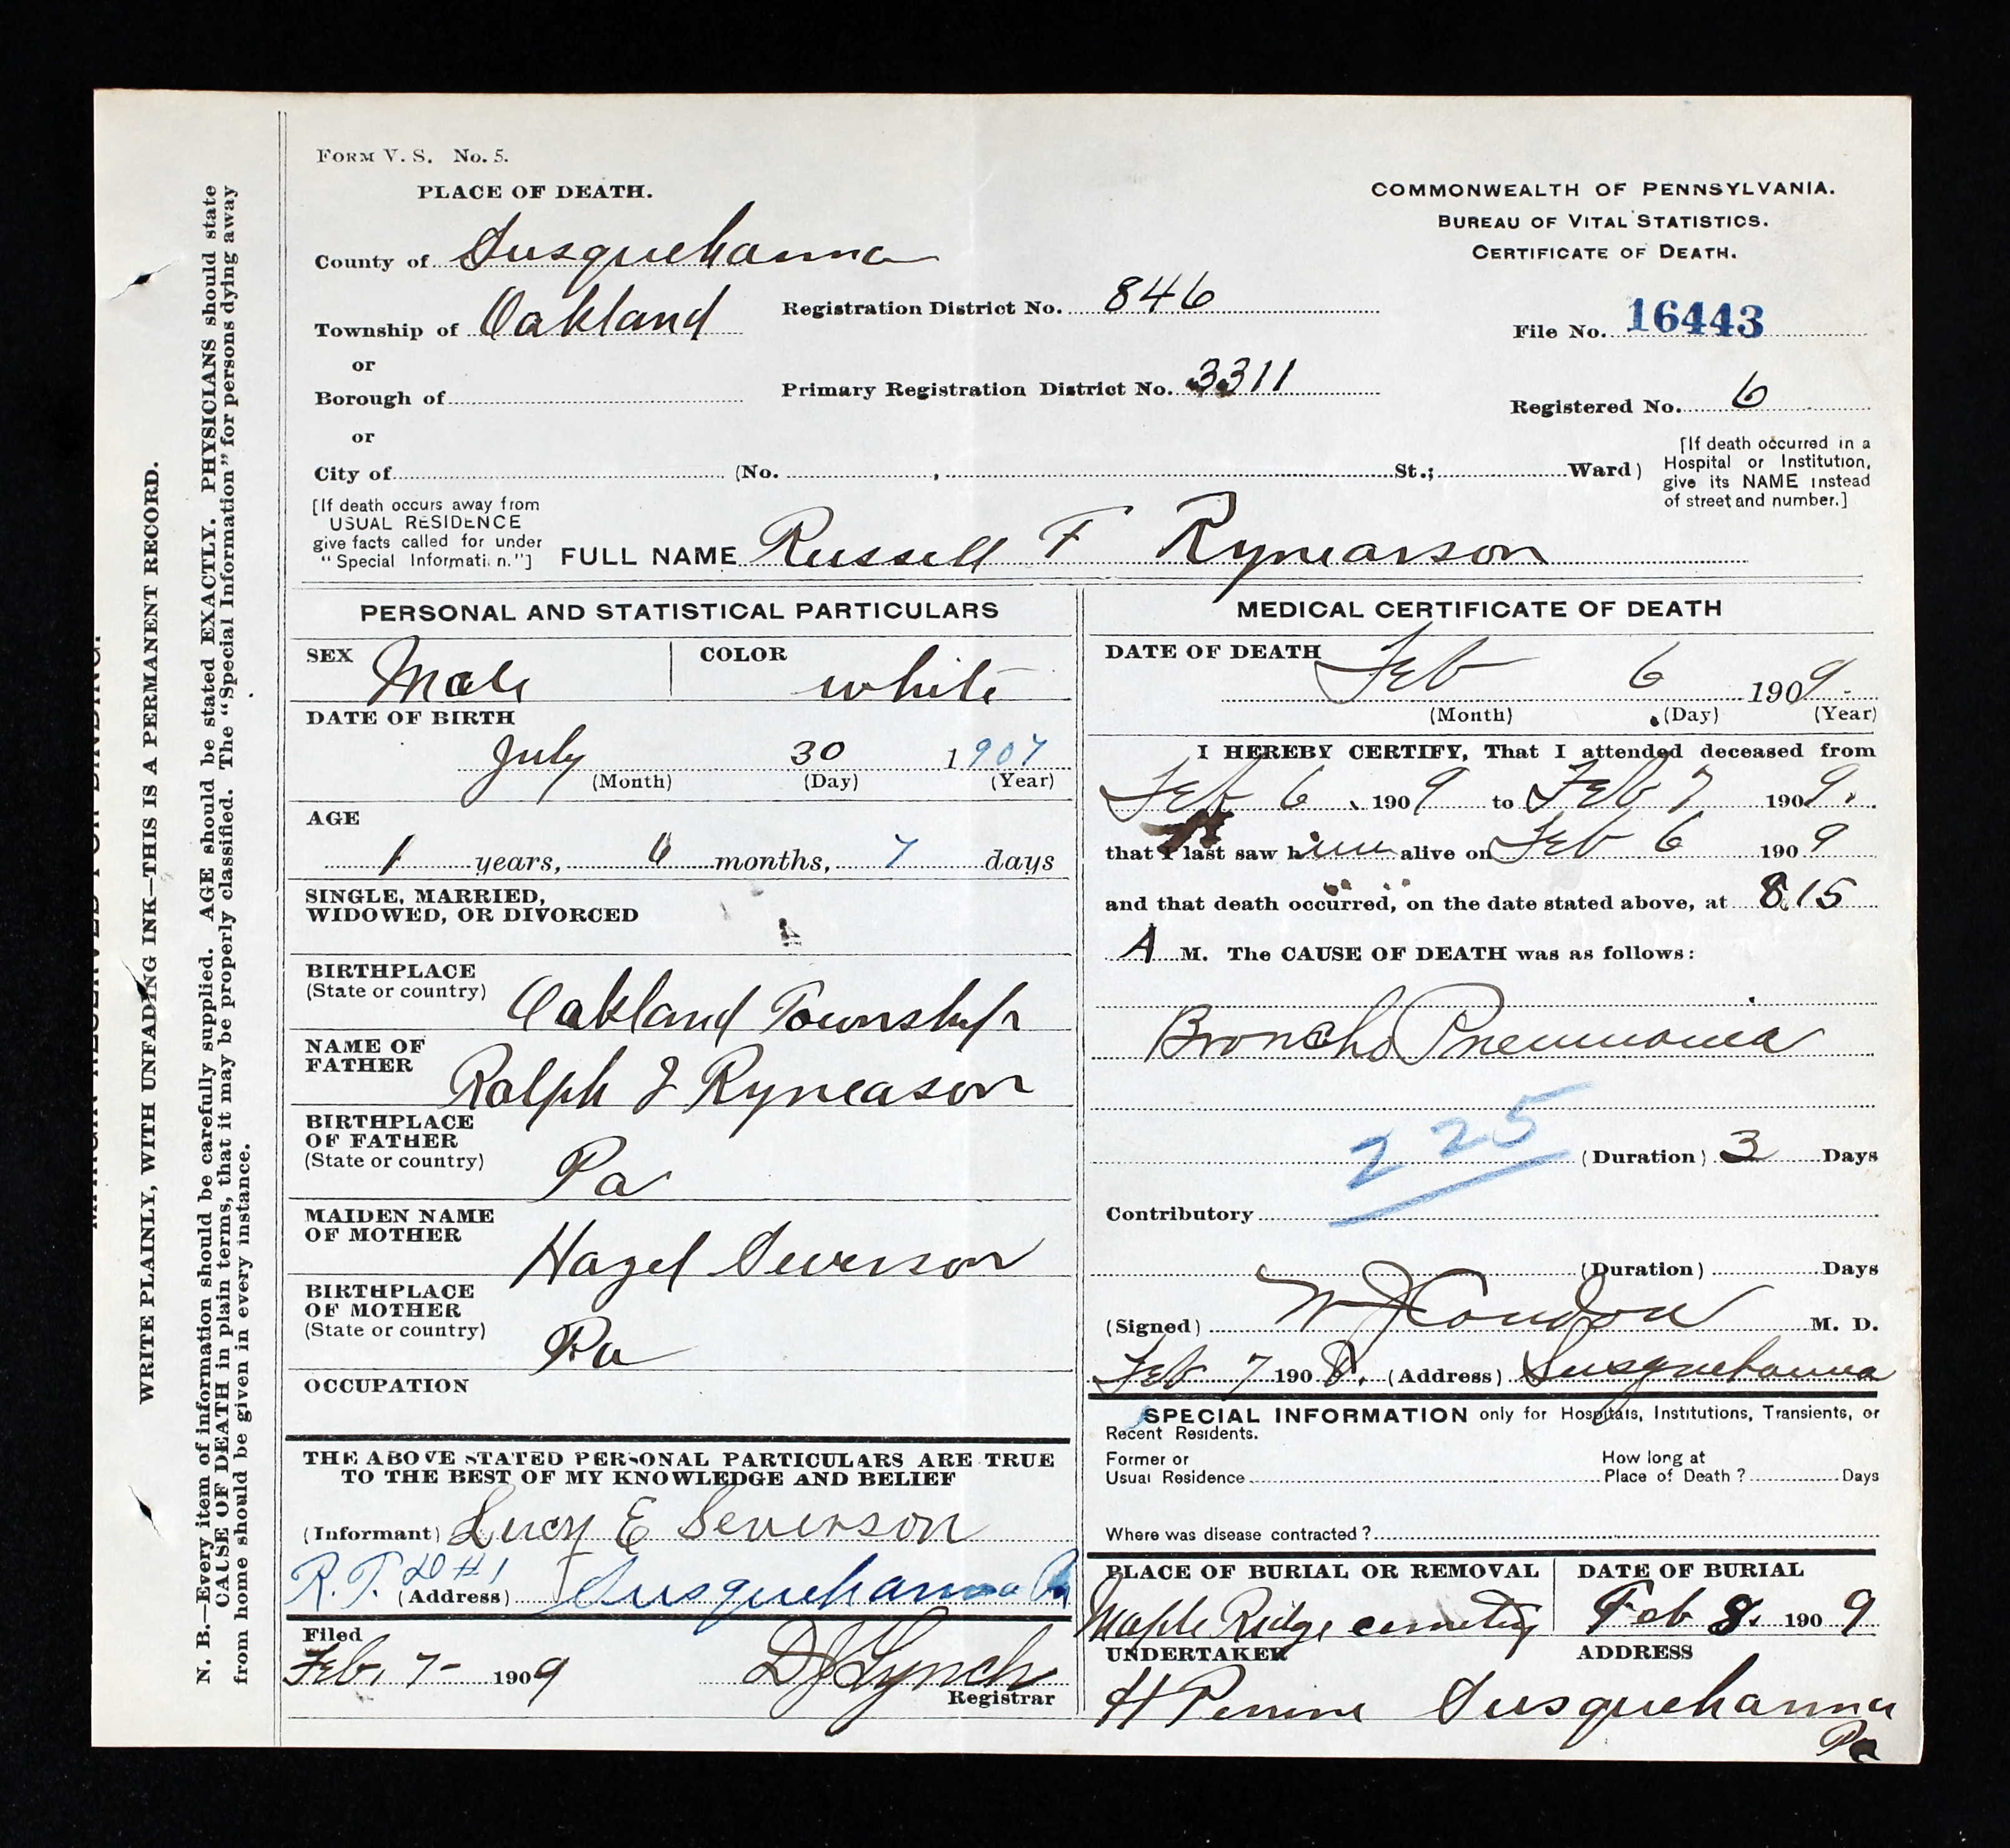 FORM V. S. No. 5.
PLACE OF DEATH.
County of Susquehanna
Township of Oakland
or
Borough of
or
City of (No. , St.; Ward)
COMMONWEALTH OF PENNSYLVANIA.
BUREAU OF VITAL STATISTICS.
CERTIFICATE OF DEATH.
Registration District No. 846
Primary Registration District No. 3311
File No. 16443
Registered No. 6
[If death occurred in a
Hospital or Institution,
give its NAME instead
of street and number.]
[If death occurs away from
USUAL RESIDENCE
give facts called for under
"Special Informati n."]
FULL NAME Russell F Rynearson
PERSONAL AND STATISTICAL PARTICULARS
SEX Male
COLOR white
DATE OF BIRTH
July 30 1907
(Month) (Day) (Year)
AGE
1 years, 6 months, 7 days
SINGLE, MARRIED,
WIDOWED, OR DIVORCED
BIRTHPLACE
(State or country) Oakland Township
NAME OF
FATHER Ralph J Ryneason
BIRTHPLACE
OF FATHER
(State or country) Pa
MAIDEN NAME
OF MOTHER Hazel Severson
BIRTHPLACE
OF MOTHER
(State or country) Pa
OCCUPATION
THE ABOVE STATED PERSONAL PARTICULARS ARE TRUE
TO THE BEST OF MY KNOWLEDGE AND BELIEF
(Informant) Lucy E Severson
R.F. D #1
(Address) Susquehanna Pa
Filed
Feb. 7- 1909 D J Lynch
Registrar
MEDICAL CERTIFICATE OF DEATH
DATE OF DEATH
Feb 6 1909.
(Month) (Day) (Year)
I HEREBY CERTIFY, That I attended deceased from
Feb 6, 1909 to Feb 7 1909.
that I last saw him alive on Feb 6 1909
and that death occurred, on the date stated above, at 8.15
A M. The CAUSE OF DEATH was as follows:
Broncho Pneumonia
225
(Duration) 3 Days
Contributory
(Duration) Days
(Signed) W J Condon M. D.
Feb 7 190 (Address) Susquehanna
SPECIAL INFORMATION only for Hospitals, Institutions, Transients, or
Recent Residents.
Former or
Usual Residence
How long at
Place of Death? Days
Where was disease contracted?
PLACE OF BURIAL OR REMOVAL
Maple Ridge cemetery
DATE OF BURIAL
Feb 8. 1909
UNDERTAKER
H Perrine
ADDRESS
Susquehanna
Pa
WRITE PLAINLY, WITH UNFADING INK—THIS IS A PERMANENT RECORD.
N. B.—Every item of information should be carefully supplied. AGE should be stated EXACTLY. PHYSICIANS should state
CAUSE OF DEATH in plain terms, that it may be properly classified. The "Special Information" for persons dying away
from home should be given in every instance.